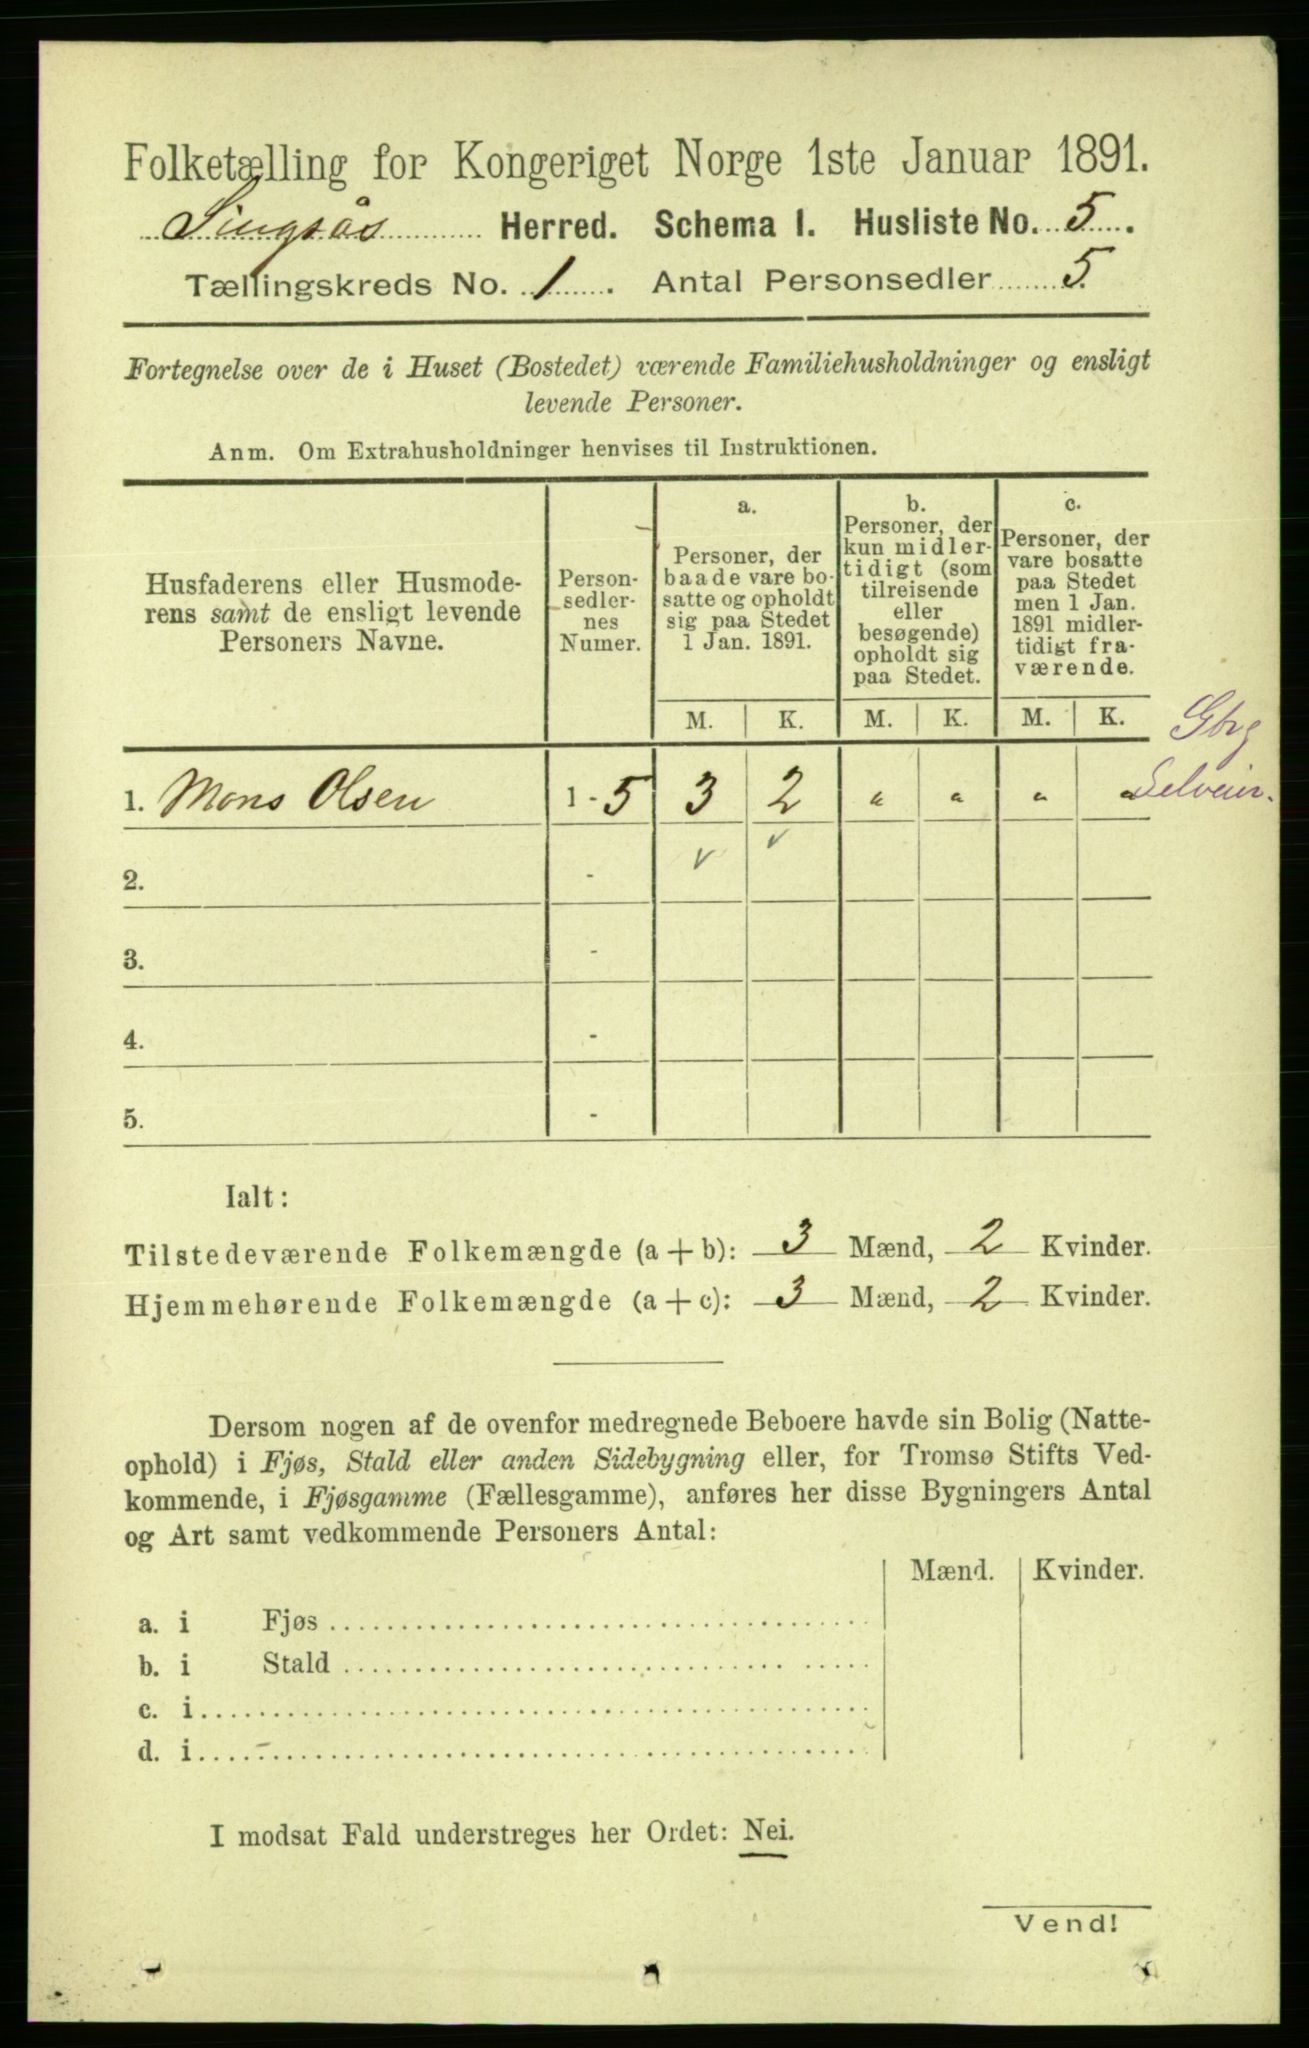 Folketælling for Kongeriget Norge 1ste Januar 1891.
Singsås Herred. Schema I. Husliste No. 5.
Tællingskreds No. 1. Antal Personsedler 5.
Fortegnelse over de i Huset (Bostedet) værende Familiehusholdninger og ensligt
levende Personer.
Anm. Om Extrahusholdninger henvises til Instruktionen.
Husfaderens eller Husmode-
rens samt de ensligt levende
Personers Navne.
Person-
sedler-
nes
Numer.
a.
Personer, der
baade vare bo-
satte og opholdt
sig paa Stedet
1 Jan. 1891.
b.
Personer, der
kun midler-
tidigt (som
tilreisende
eller
besøgende)
opholdt sig
paa Stedet.
c.
Personer, der
vare bosatte
paa Stedet
men 1 Jan.
1891 midler-
tidigt fra-
værende.
M. K. M. K. M. K.
Gbrg
Selveier.
1. Mons Olsen 1 - 5 3 2 " " " "
2. - v v
3. -
4. -
5. -
Ialt:
Tilstedeværende Folkemængde (a + b): 3 Mænd, 2 Kvinder.
Hjemmehørende Folkemængde (a + c): 3 Mænd, 2 Kvinder.
Dersom nogen af de ovenfor medregnede Beboere havde sin Bolig (Natte-
ophold) i Fjøs, Stald eller anden Sidebygning eller, for Tromsø Stifts Ved-
kommende, i Fjøsgamme (Fællesgamme), anføres her disse Bygningers Antal
og Art samt vedkommende Personers Antal:
Mænd. Kvinder.
a. i Fjøs
b. i Stald
c. i
d. i
I modsat Fald understreges her Ordet: Nei.
Vend!